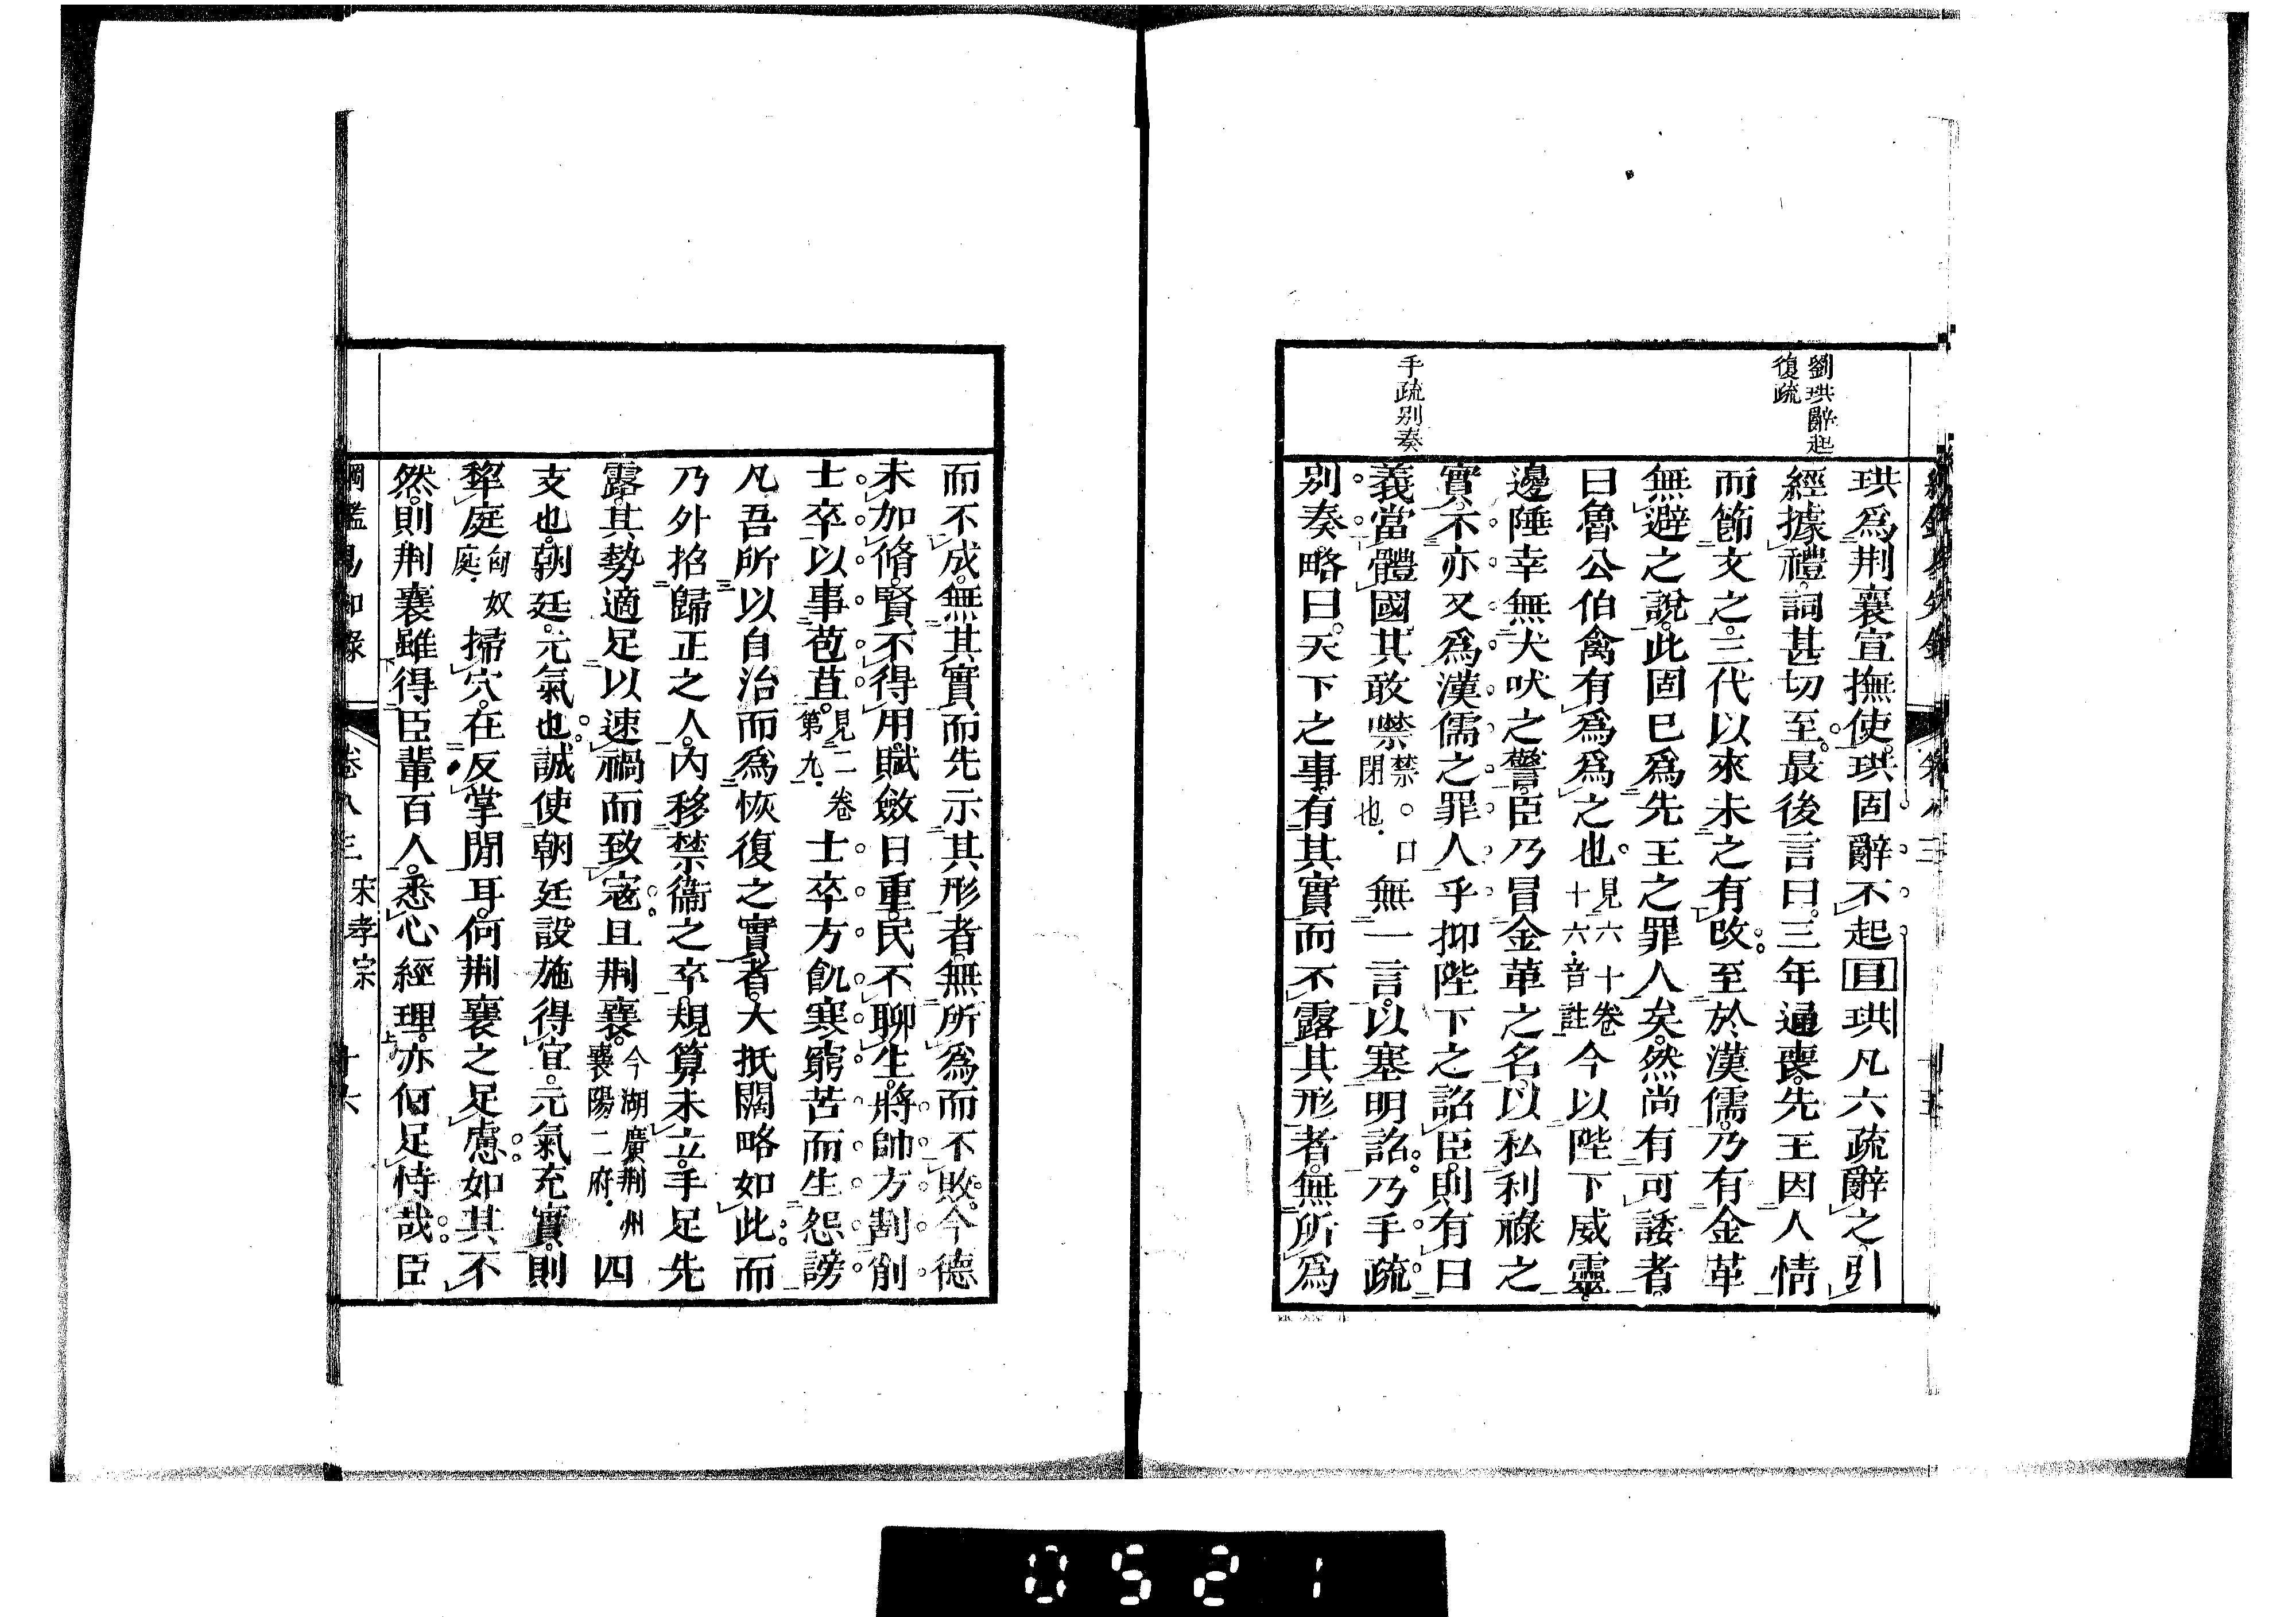 劉珙辭起
復疏
珙爲荆襄宣撫使。珙固辭不起目珙凡六疏辭之。引
經據禮。詞甚切至。最後言曰。三年通喪。先王因人情
而節文之。三代以來未之有改。至於漢儒。乃有金革
無避之說。此固已爲先王之罪人矣。然尚有可諉者。
曰魯公伯禽有爲爲之也。見六十卷十六·音註今以陛下威靈。
邊陲幸無犬吠之警。臣乃冒金革之名。以私利祿之
實。不亦又爲漢儒之罪人乎抑陛下之詔臣。則有曰
手疏别奏
義當體國。其敢噤禁。口閉也·無一言。以塞明詔。乃手疏
别奏略曰。天下之事。有其實而不露其形者。無所爲
而不成。無其實而先示其形者。無所爲而不敗。今德
未加脩。賢不得用。賦斂日重。民不聊生。將帥方割削
士卒以事苞苴。見二卷第九·士卒方飢寒窮苦而生怨謗
凡吾所以自治而爲恢復之實者。大抵闊略如此。而
乃外招歸正之人。内移禁衞之卒。規算未立。手足先
露。其勢適足以速禍而致寇。且荆襄。今湖廣荆州襄陽二府·四
支也。朝廷。元氣也。誠使朝廷設施得宜。元氣充實。則
犂庭匈奴庭·掃穴。在反掌閒耳。何荆襄之足慮。如其不
然。則荆襄雖得臣輩百人。悉心經理。亦何足恃哉。臣
綱鑑易知錄 卷八三 宋孝宗 十六